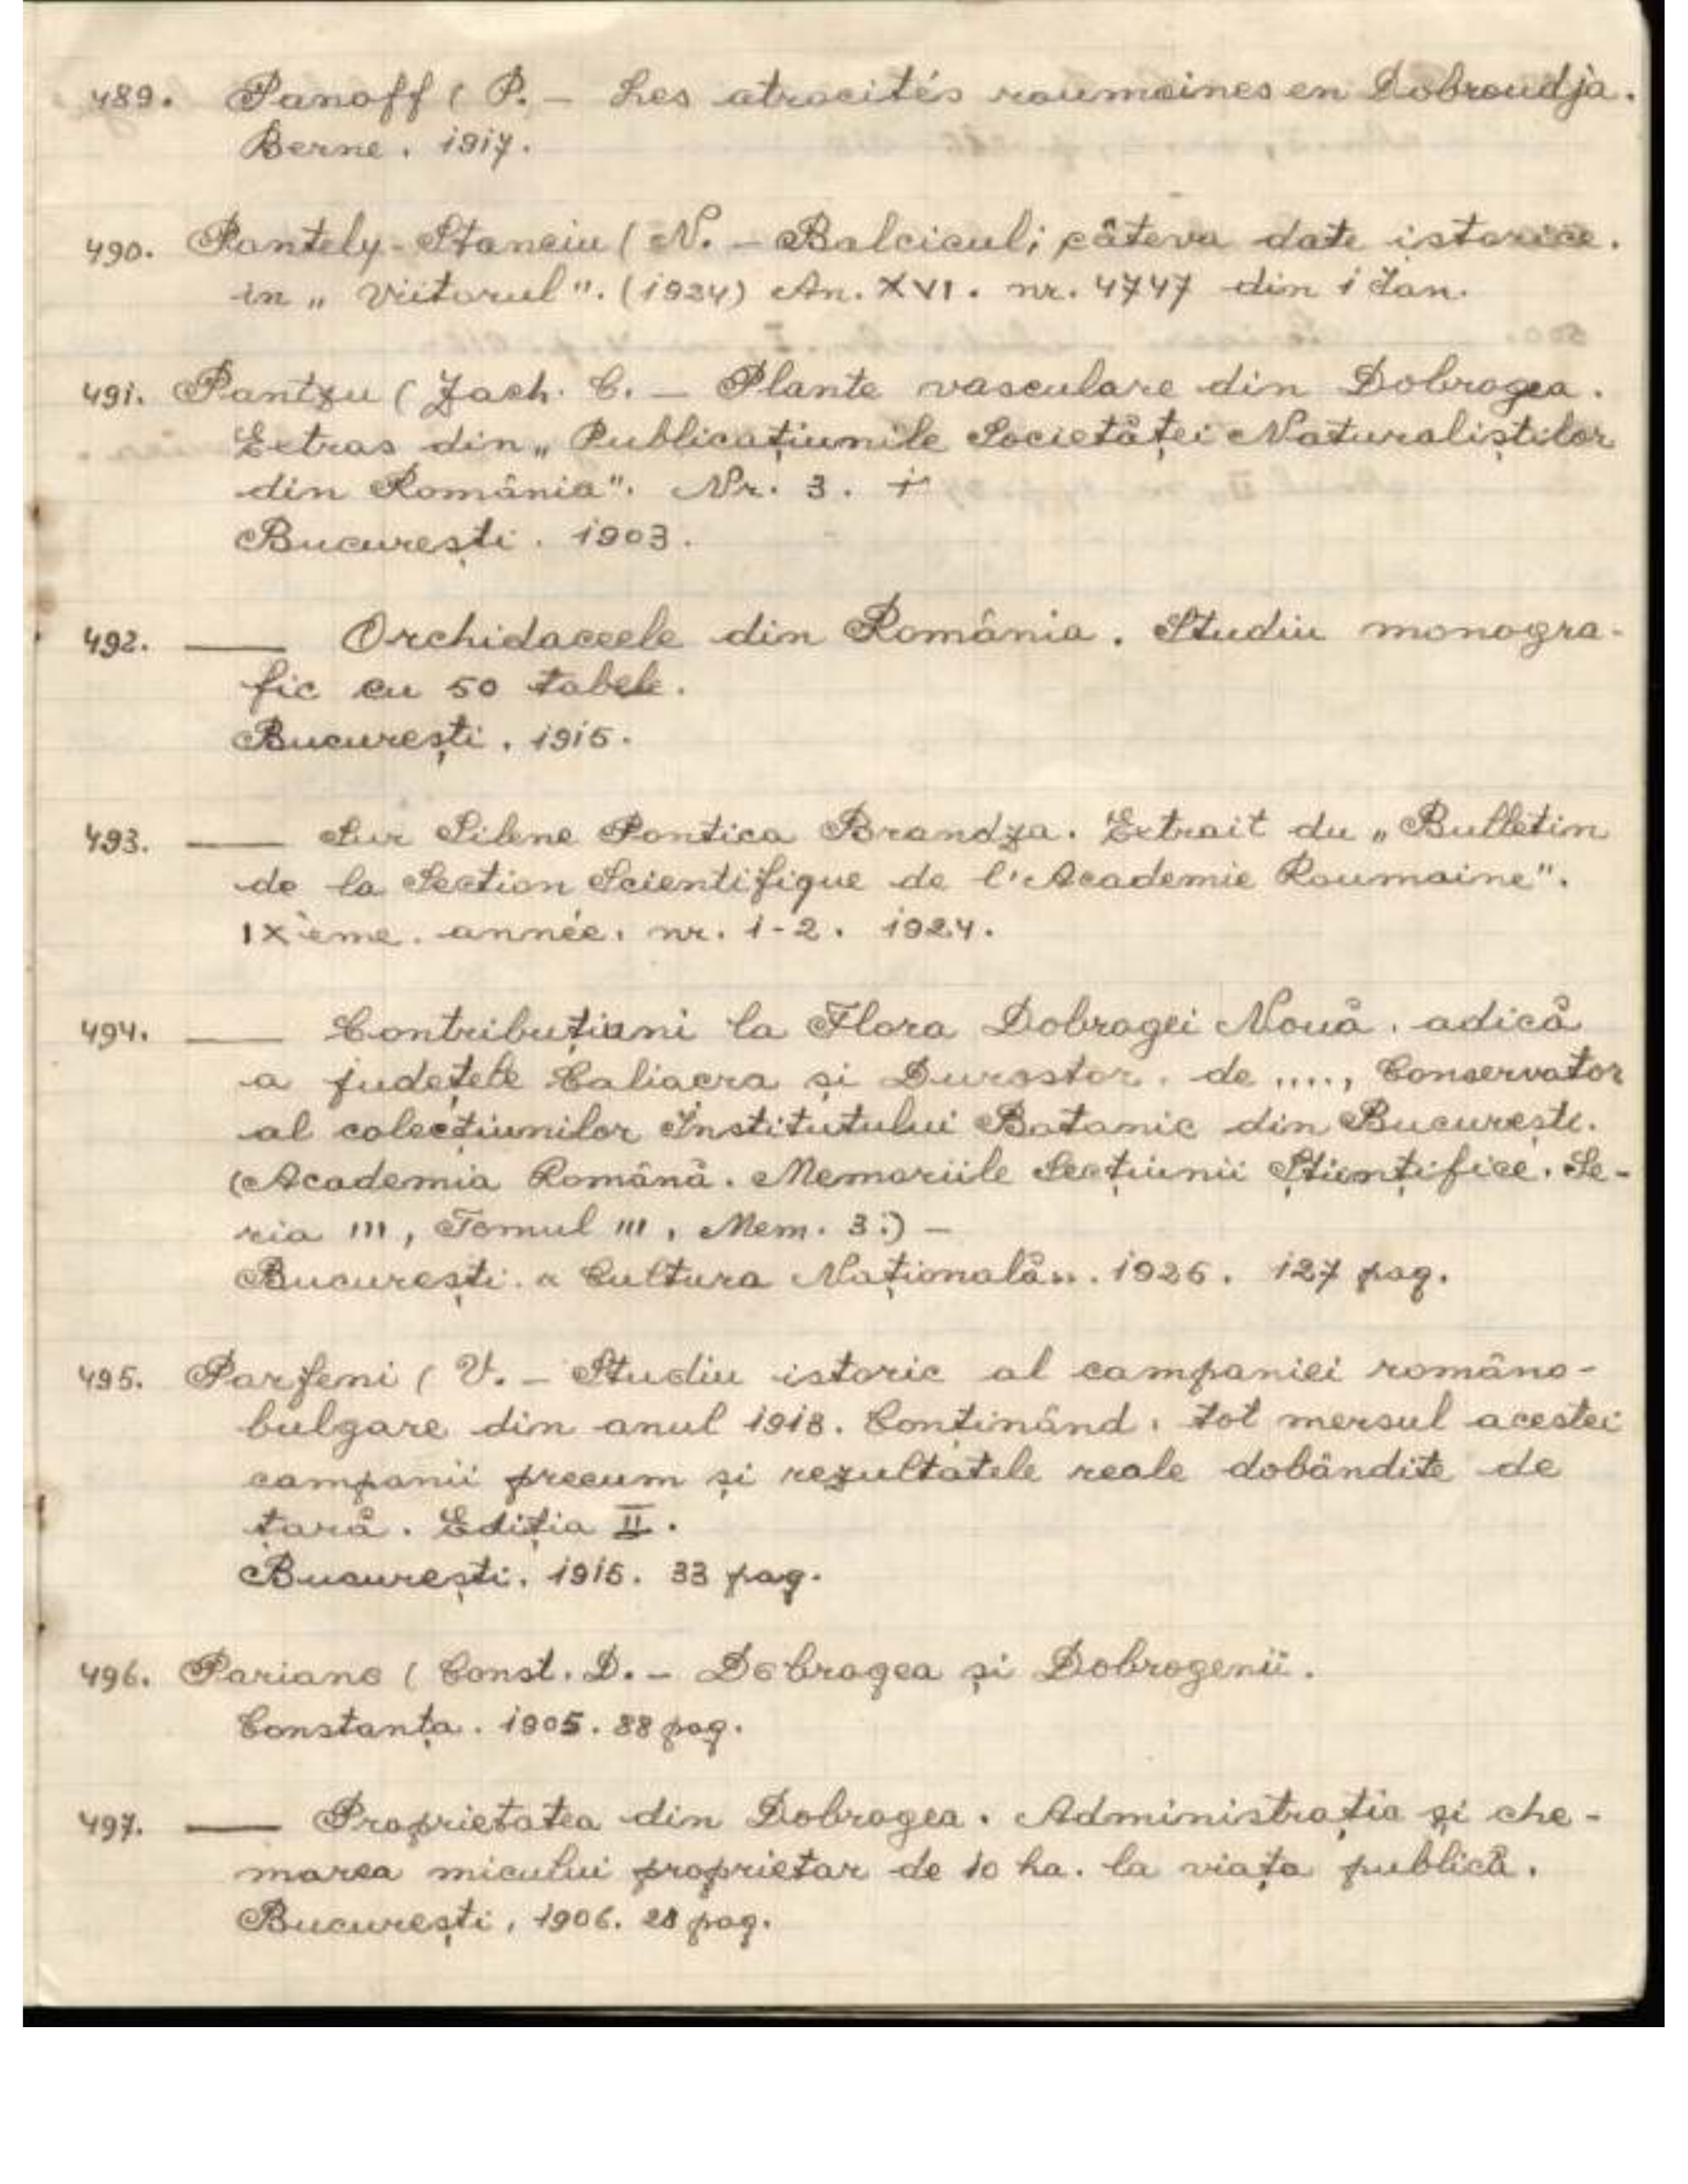 489. Panoff ( P. – Les atrocités roumaines en Dobroudja.
Berne. 1917.
490. Pantely-Stanciu ( N. – Balcicul; câteva date istorice.
in „ Viitorul". (1924) An. XVI. nr. 4747 din 1 Ian.
491. Pantzu ( Zach. C. – Plante vasculare din Dobrogea.
Extras din „ Publicațiunile Societăței Naturaliștilor
din România". Nr. 3.
București. 1903.
492. —— Orchidaceele din România. Studiu monogra-
fic cu 50 tabele.
București. 1915.
493. —— Sur Silene Pontica Brandza. Extrait du „ Bulletin
de la Section Scientifique de l'Academie Roumaine".
IXème. année. nr. 1-2. 1924.
494. —— Contribuțiuni la Flora Dobrogei Nouă. adică
a județele Caliacra și Durostor. de ...., Conservator
al colecțiunilor Institutului Botanic din București.
(Academia Română. Memoriile Secțiunii Științifice. Se-
ria III, Tomul III, Mem. 3.) –
București. „ Cultura Națională„. 1925. 127 pag.
495. Parfeni ( V. – Studiu istoric al campaniei româno-
bulgare din anul 1913. Conținând. tot mersul acestei
campanii precum și rezultatele reale dobândite de
țară. Ediția II.
București. 1915. 33 pag.
496. Pariano ( Const. D. – Dobrogea și Dobrogenii.
Constanța. 1905. 88 pag.
497. —— Proprietatea din Dobrogea. Administrația și che-
marea micului proprietar de 10 ha. la viața publică.
București, 1906. 28 pag.